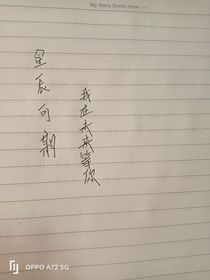 My Story Starts Here
星辰可期
我在未来等你
OPPO A72 5G